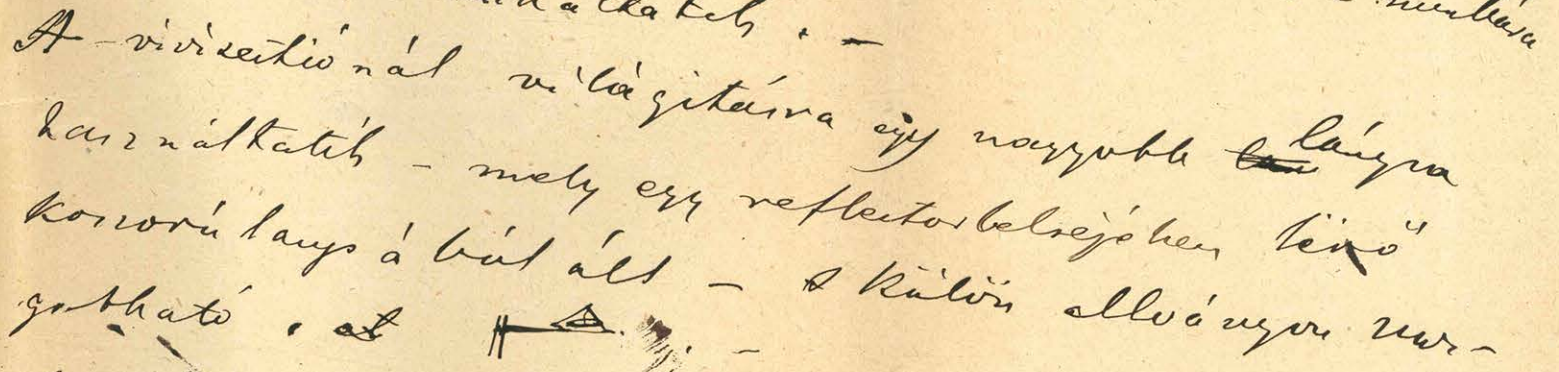 A vivisectiónál világitásra egy nagyobb lámpa
használtatik – mely egy reflector belsejében lévő
koszorú lampából állt – s külön állványon moz-
gatható .